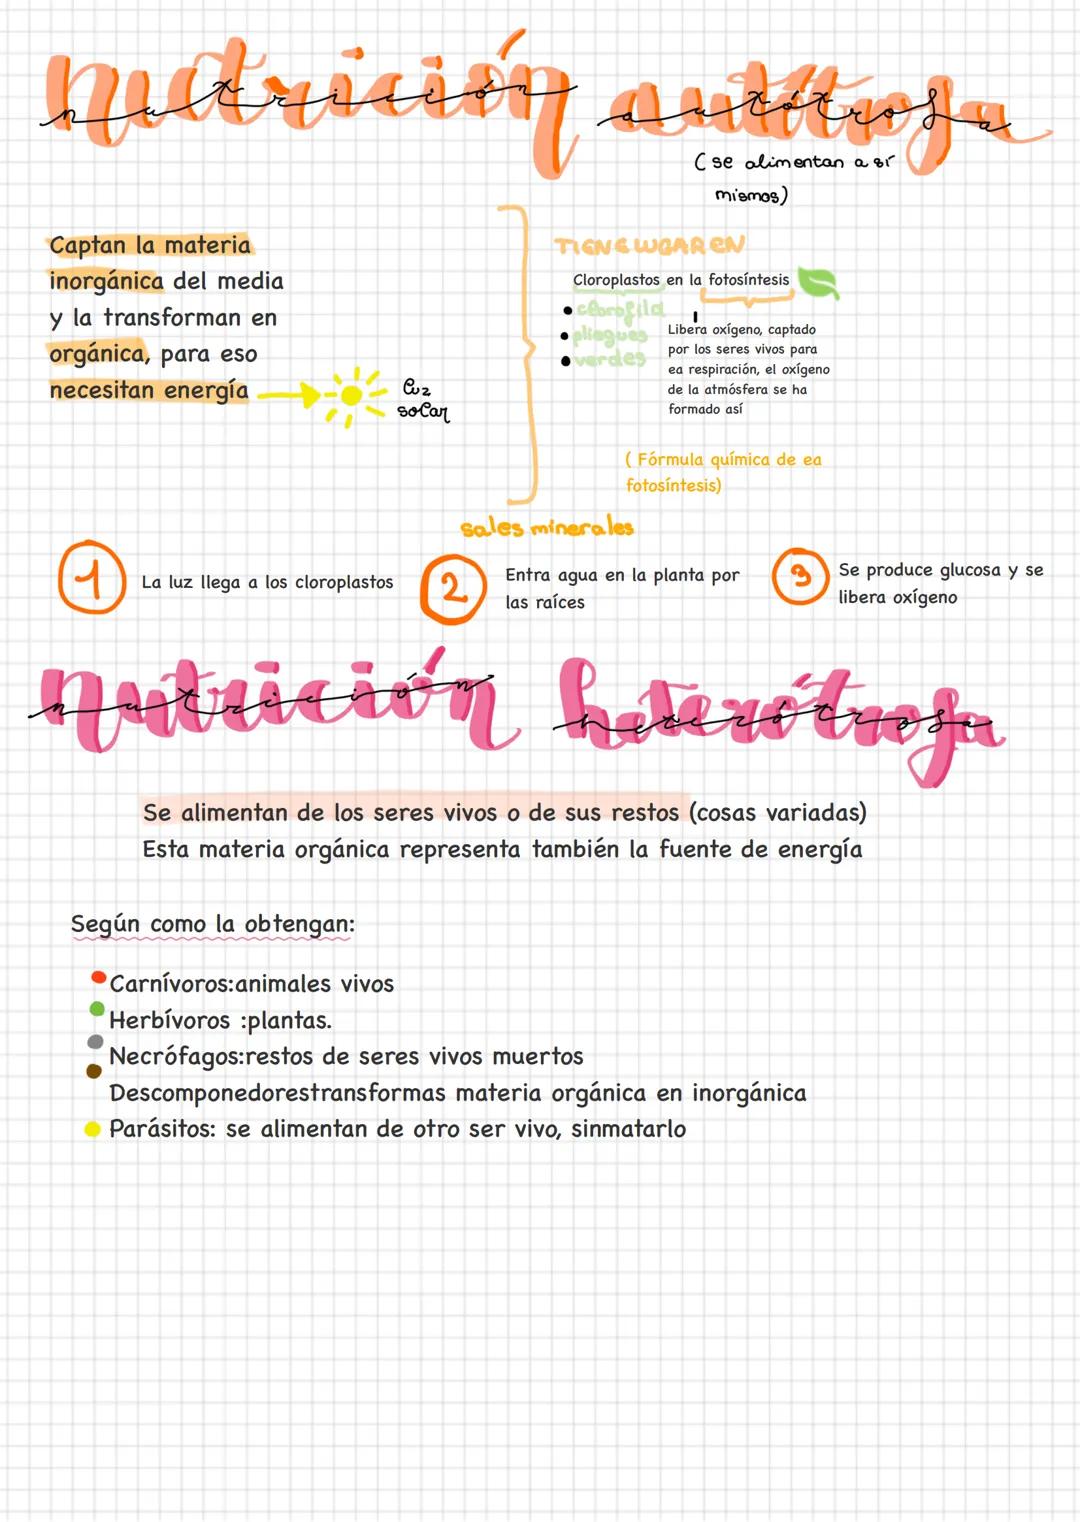 nutrición autótrofa
nutrición autótrofa
(se alimentan a sí
mismos)
Captan la materia
inorgánica del media
y la transforman en
orgánica, para eso
necesitan energía
luz
solar
TIENE LUGAR EN
Cloroplastos en la fotosíntesis
clorofila
pliegues
verdes
Libera oxígeno, captado
por los seres vivos para
ea respiración, el oxígeno
de la atmósfera se ha
formado así
( Fórmula química de ea
fotosíntesis)
sales minerales
1 La luz llega a los cloroplastos
2 Entra agua en la planta por
las raíces
3 Se produce glucosa y se
libera oxígeno
nutrición heterótrofa
nutrición heterótrofa
Se alimentan de los seres vivos o de sus restos (cosas variadas)
Esta materia orgánica representa también la fuente de energía
Según como la obtengan:
Carnívoros:animales vivos
Herbívoros :plantas.
Necrófagos:restos de seres vivos muertos
Descomponedorestransformas materia orgánica en inorgánica
Parásitos: se alimentan de otro ser vivo, sinmatarlo